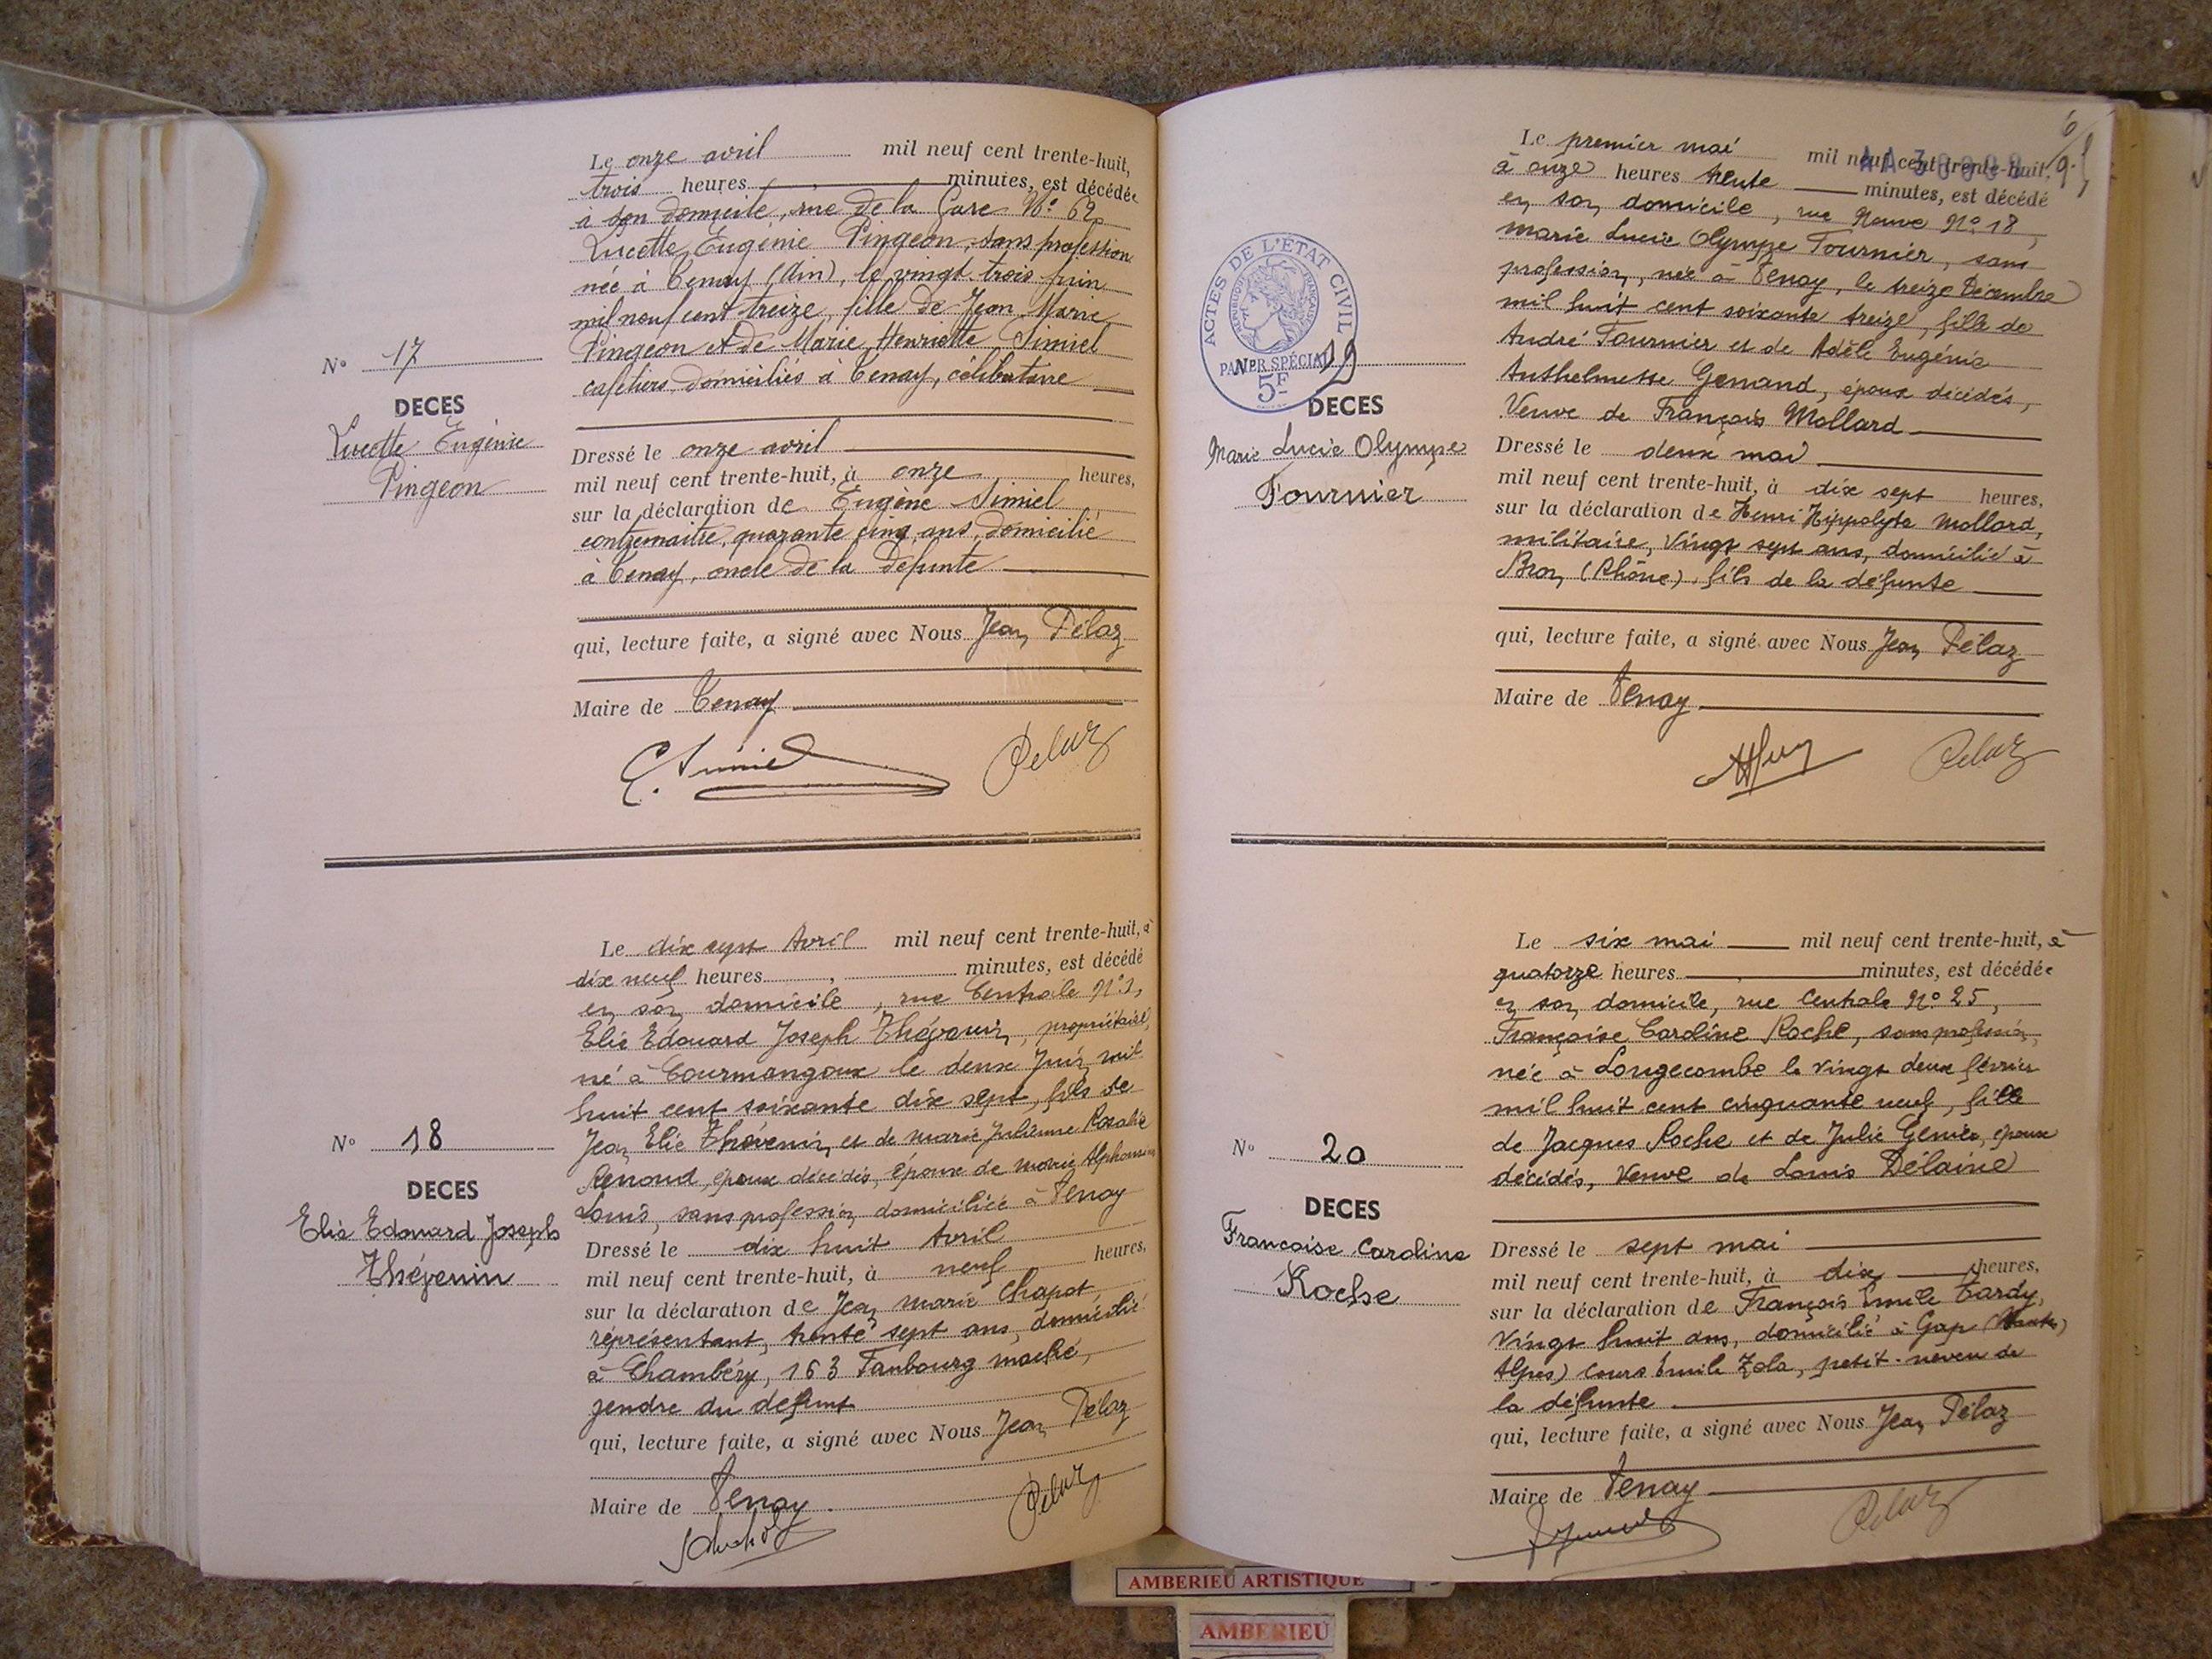 Le onze avril mil neuf cent trente-huit,
trois heures minutes, est décédée
à son domicile, rue de la Gare N° 62
Lucette Eugénie Pingeon, sans profession
née à Tenay (Ain), le vingt trois juin
mil neuf cent treize, fille de Jean Marie
Pingeon et de Marie Henriette Simiel
cafetiers, domiciliés à Tenay, célibataire
N° 17
DECES
Lucette Eugénie
Pingeon
Dressé le onze avril
mil neuf cent trente-huit, à onze heures,
sur la déclaration de Eugène Simiel
contremaître, quarante cinq ans, domicilié
à Tenay, oncle de la défunte
qui, lecture faite, a signé avec Nous Jean Pélaz
Maire de Tenay
E. Simiel Pelaz
Le dix sept Avril mil neuf cent trente-huit, à
dix neuf heures, minutes, est décédé
en son domicile, rue Centrale N°
Elie Edouard Joseph Thévenin, propriétaire,
né à Courmangoux le deux Juin mil
huit cent soixante dix sept, fils de
Jean Elie Thévenin et de marie Julienne Rosalie
Renoud, époux décédés, époux de marie Alphonsine
Louis, sans profession domiciliée à Tenay
N° 18
DECES
Elie Edouard Joseph
Thévenin
Dressé le dix huit Avril
mil neuf cent trente-huit, à neuf heures,
sur la déclaration de Jean marie Chapot
réprésentant, trente sept ans, domicilié
à Chambéry, 163 Faubourg maché,
gendre du défunt
qui, lecture faite, a signé avec Nous Jean Pélaz
Maire de Tenay
Pelaz
Le premier mai mil neuf cent trente-huit,
à onze heures trente minutes, est décédé
en son domicile, rue Neuve N° 18,
marie Lucie Olympe Fournier, sans
profession, née à Tenay, le treize Décembre
mil huit cent soixante treize, fille de
André Fournier et de Adèle Eugénie
Anthelmesse Genand, époux décédés,
Veuve de François Mollard
ACTES DE L'ÉTAT CIVIL
RÉPUBLIQUE FRANÇAISE
PAPIER SPÉCIAL
5F
N° 19
DECES
Marie Lucie Olympe
Fournier
Dressé le deux mai
mil neuf cent trente-huit, à dix sept heures,
sur la déclaration de Henri Hippolyte Mollard,
militaire, Vingt sept ans, domicilié à
Bron (Rhône), fils de la défunte
qui, lecture faite, a signé avec Nous Jean Pélaz
Maire de Tenay
Pelaz
Le six mai mil neuf cent trente-huit, à
quatorze heures, minutes, est décédée
en son domicile, rue Centrale N° 25,
Françoise Caroline Roche, sans profession,
née à Longecombe le vingt deux février
mil huit cent cinquante neuf, fille
de Jacques Roche et de Julie époux
décédés, Veuve de Louis Délaine
N° 20
DECES
Françoise Caroline
Roche
Dressé le sept mai
mil neuf cent trente-huit, à dix heures,
sur la déclaration de François Emile Tardy,
Vingt huit ans, domicilié à Gap (Hautes
Alpes) Cours Emile Zola, petit-neveu de
la défunte
qui, lecture faite, a signé avec Nous Jean Pélaz
Maire de Tenay
Pelaz
AMBERIEU ARTISTIQUE
AMBERIEU